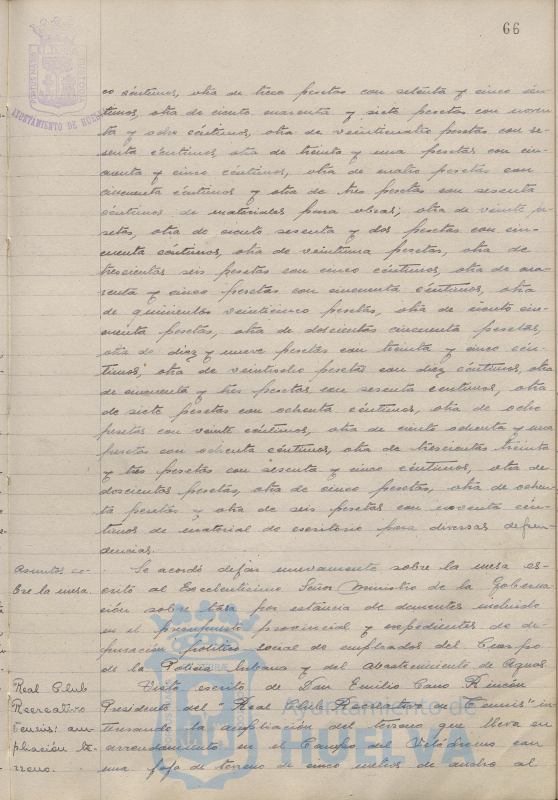 66
AYUNTAMIENTO DE HUELVA
co céntimos, otra de trece pesetas con setenta y cinco cén-
timos, otra de ciento cuarenta y siete pesetas con noven-
ta y ocho céntimos, otra de veinticuatro pesetas con se-
senta céntimos, otra de treinta y una pesetas con cin-
cuenta y cinco céntimos, otra de cuatro pesetas con
cincuenta céntimos y otra de tres pesetas con sesenta
céntimos de materiales para obras; otra de veinte pe-
setas, otra de ciento sesenta y dos pesetas con cin-
cuenta céntimos, otra de veintiuna pesetas, otra de
trescientas seis pesetas con cinco céntimos, otra de cua-
renta y cinco pesetas con cincuenta céntimos, otra
de quinientas veinticinco pesetas, otra de ciento cin-
cuenta pesetas, otra de doscientas cincuenta pesetas,
otra de diez y nueve pesetas con treinta y cinco cén-
timos, otra de veintiocho pesetas con diez céntimos, otra
de cincuenta y tres pesetas con sesenta céntimos, otra
de siete pesetas con ochenta céntimos, otra de ocho
pesetas con veinte céntimos, otra de ciento ochenta y una
pesetas con ochenta céntimos, otra de trescientas treinta
y tres pesetas con sesenta y cinco céntimos, otra de
doscientas pesetas, otra de cinco pesetas, otra de ochen-
ta pesetas y otra de seis pesetas con noventa cén-
timos de material de escritorio para diversas depen-
dencias.
Asuntos so-
bre la mesa.
Se acordó dejar nuevamente sobre la mesa es-
crito al Excelentísimo Señor Ministro de la Goberna-
ción sobre tasa por estancia de dementes incluido
en el presupuesto provincial y expedientes de de-
puración político social de empleados del Cuerpo
de la Policía Urbana y del Abastecimiento de Aguas
Real Club
Recreativo
Tennis: am-
pliación te-
rreno.
Visto escrito de Don Emilio Cano Rincón
Presidente del "Real Club Recreativo de Tennis" in-
teresando la ampliación del terreno que lleva en
arrendamiento en el Campo del Velódromo con
una faja de terreno de cinco metros de ancho al
Ayuntamiento de
HUELVA